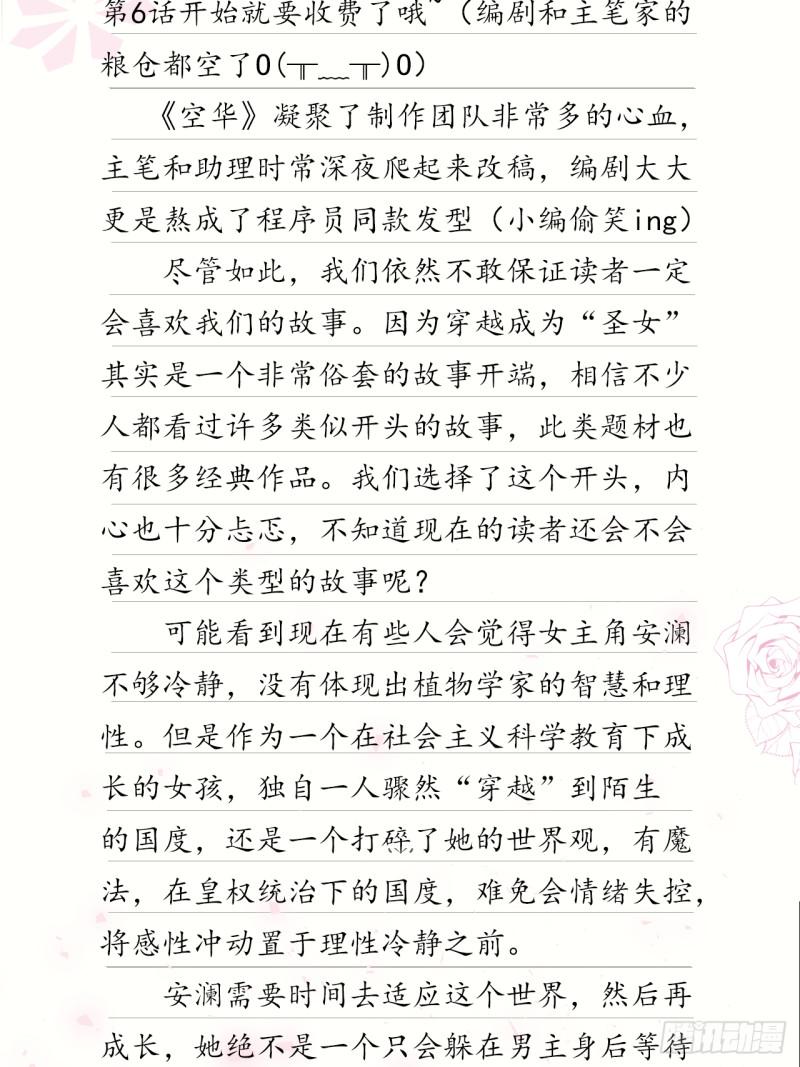 第6话开始就要收费了哦~（编剧和主笔家的
粮仓都空了O(╥﹏╥)O）
《空华》凝聚了制作团队非常多的心血，
主笔和助理时常深夜爬起来改稿，编剧大大
更是熬成了程序员同款发型（小编偷笑ing）
尽管如此，我们依然不敢保证读者一定
会喜欢我们的故事。因为穿越成为“圣女”
其实是一个非常俗套的故事开端，相信不少
人都看过许多类似开头的故事，此类题材也
有很多经典作品。我们选择了这个开头，内
心也十分忐忑，不知道现在的读者还会不会
喜欢这个类型的故事呢？
可能看到现在有些人会觉得女主角安澜
不够冷静，没有体现出植物学家的智慧和理
性。但是作为一个在社会主义科学教育下成
长的女孩，独自一人骤然“穿越”到陌生
的国度，还是一个打碎了她的世界观，有魔
法，在皇权统治下的国度，难免会情绪失控，
将感性冲动置于理性冷静之前。
安澜需要时间去适应这个世界，然后再
成长，她绝不是一个只会躲在男主身后等待
腾讯动漫